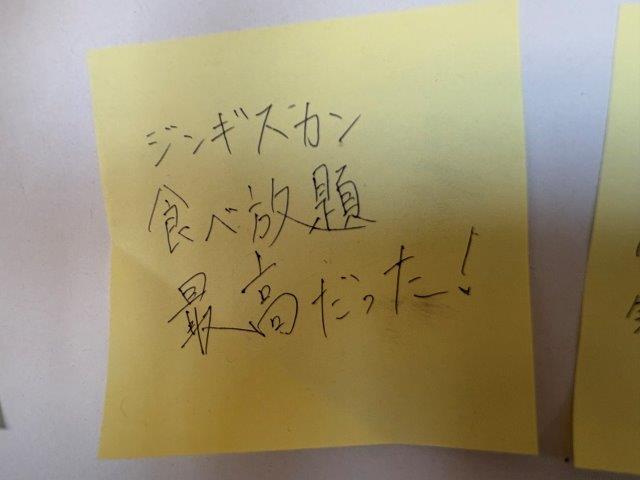 ジンギスカン
食べ放題
最高だった!